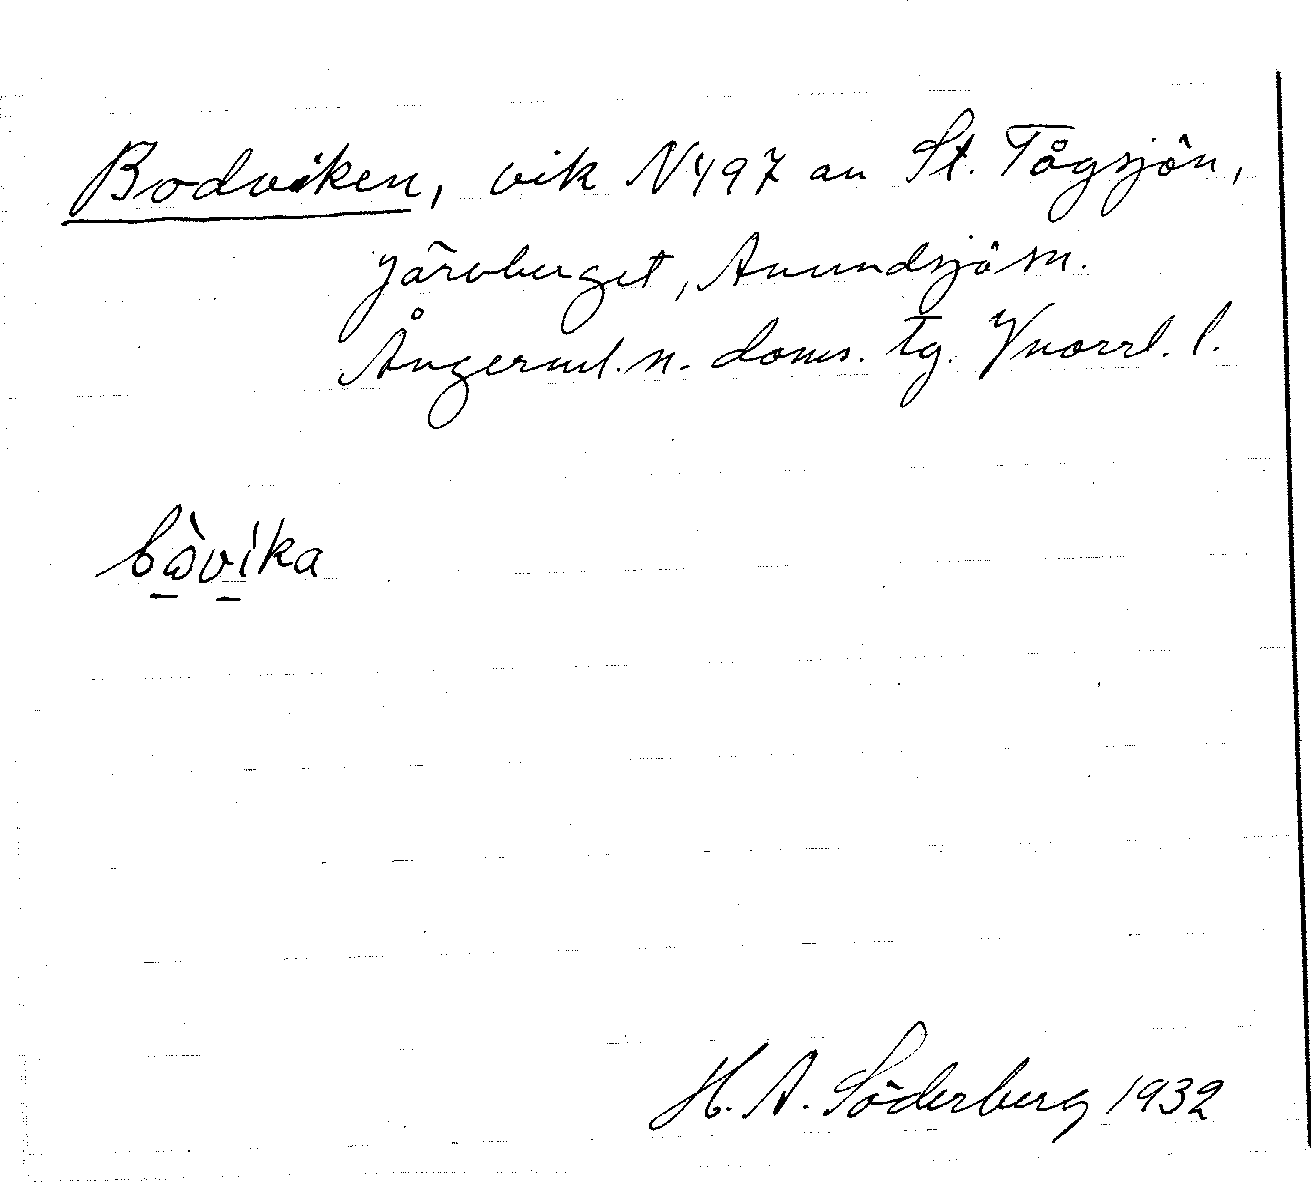 Bodviken, vik N497 an St. Tågsjön,
Järvberget, Anundsjö sn.
Ångerml. n. doms. tg. Vnorrl. l.
bὼ̱vi̱ka
H. A. Söderberg 1932